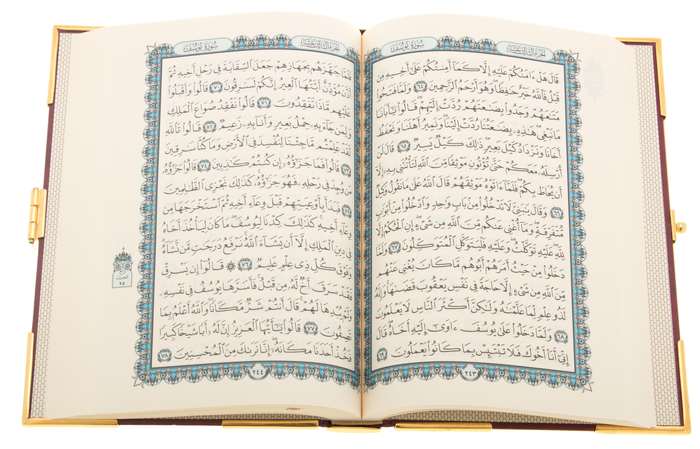 الجزء الثالث عشر سورة يوسف
قَالَ هَلْ ءَامَنُكُمْ عَلَيْهِ إِلَّا كَمَآ أَمِنتُكُمْ عَلَىٰٓ أَخِيهِ مِن
قَبْلُ فَٱللَّهُ خَيْرٌ حَٰفِظًا وَهُوَ أَرْحَمُ ٱلرَّٰحِمِينَ ٦٤ وَلَمَّا فَتَحُوا۟
مَتَٰعَهُمْ وَجَدُوا۟ بِضَٰعَتَهُمْ رُدَّتْ إِلَيْهِمْ قَالُوا۟ يَٰٓأَبَانَا
مَا نَبْغِى هَٰذِهِۦ بِضَٰعَتُنَا رُدَّتْ إِلَيْنَا وَنَمِيرُ أَهْلَنَا وَنَحْفَظُ
أَخَانَا وَنَزْدَادُ كَيْلَ بَعِيرٍ ذَٰلِكَ كَيْلٌ يَسِيرٌ ٦٥ قَالَ لَنْ
أُرْسِلَهُۥ مَعَكُمْ حَتَّىٰ تُؤْتُونِ مَوْثِقًا مِّنَ ٱللَّهِ لَتَأْتُنَّنِى بِهِۦٓ إِلَّآ
أَن يُحَاطَ بِكُمْ فَلَمَّآ ءَاتَوْهُ مَوْثِقَهُمْ قَالَ ٱللَّهُ عَلَىٰ مَا نَقُولُ وَكِيلٌ
٦٦ وَقَالَ يَٰبَنِىَّ لَا تَدْخُلُوا۟ مِنۢ بَابٍ وَٰحِدٍ وَٱدْخُلُوا۟ مِنْ أَبْوَٰبٍ
مُّتَفَرِّقَةٍ وَمَآ أُغْنِى عَنكُم مِّنَ ٱللَّهِ مِن شَىْءٍ إِنِ ٱلْحُكْمُ إِلَّا
لِلَّهِ عَلَيْهِ تَوَكَّلْتُ وَعَلَيْهِ فَلْيَتَوَكَّلِ ٱلْمُتَوَكِّلُونَ ٦٧ وَلَمَّا
دَخَلُوا۟ مِنْ حَيْثُ أَمَرَهُمْ أَبُوهُم مَّا كَانَ يُغْنِى عَنْهُم
مِّنَ ٱللَّهِ مِن شَىْءٍ إِلَّا حَاجَةً فِى نَفْسِ يَعْقُوبَ قَضَىٰهَا وَإِنَّهُۥ
لَذُو عِلْمٍ لِّمَا عَلَّمْنَٰهُ وَلَٰكِنَّ أَكْثَرَ ٱلنَّاسِ لَا يَعْلَمُونَ
٦٨ وَلَمَّا دَخَلُوا۟ عَلَىٰ يُوسُفَ ءَاوَىٰٓ إِلَيْهِ أَخَاهُ قَالَ
إِنِّىٓ أَنَا۠ أَخُوكَ فَلَا تَبْتَئِسْ بِمَا كَانُوا۟ يَعْمَلُونَ ٦٩
٢٤٣
الجزء الثالث عشر سورة يوسف
فَلَمَّا جَهَّزَهُم بِجَهَازِهِمْ جَعَلَ ٱلسِّقَايَةَ فِى رَحْلِ أَخِيهِ ثُمَّ
أَذَّنَ مُؤَذِّنٌ أَيَّتُهَا ٱلْعِيرُ إِنَّكُمْ لَسَٰرِقُونَ ٧٠ قَالُوا۟ وَأَقْبَلُوا۟
عَلَيْهِم مَّاذَا تَفْقِدُونَ ٧١ قَالُوا۟ نَفْقِدُ صُوَاعَ ٱلْمَلِكِ
وَلِمَن جَآءَ بِهِۦ حِمْلُ بَعِيرٍ وَأَنَا۠ بِهِۦ زَعِيمٌ ٧٢ قَالُوا۟ تَٱللَّهِ
لَقَدْ عَلِمْتُم مَّا جِئْنَا لِنُفْسِدَ فِى ٱلْأَرْضِ وَمَا كُنَّا سَٰرِقِينَ
٧٣ قَالُوا۟ فَمَا جَزَٰٓؤُهُۥٓ إِن كُنتُمْ كَٰذِبِينَ ٧٤ قَالُوا۟ جَزَٰٓؤُهُۥ
مَن وُجِدَ فِى رَحْلِهِۦ فَهُوَ جَزَٰٓؤُهُۥ كَذَٰلِكَ نَجْزِى ٱلظَّٰلِمِينَ
٧٥ فَبَدَأَ بِأَوْعِيَتِهِمْ قَبْلَ وِعَآءِ أَخِيهِ ثُمَّ ٱسْتَخْرَجَهَا مِن
وِعَآءِ أَخِيهِ كَذَٰلِكَ كِدْنَا لِيُوسُفَ مَا كَانَ لِيَأْخُذَ أَخَاهُ
فِى دِينِ ٱلْمَلِكِ إِلَّآ أَن يَشَآءَ ٱللَّهُ نَرْفَعُ دَرَجَٰتٍ مَّن نَّشَآءُ
وَفَوْقَ كُلِّ ذِى عِلْمٍ عَلِيمٌ ٧٦ ۞ قَالُوٓا۟ إِن يَسْرِقْ
فَقَدْ سَرَقَ أَخٌ لَّهُۥ مِن قَبْلُ فَأَسَرَّهَا يُوسُفُ فِى نَفْسِهِۦ
وَلَمْ يُبْدِهَا لَهُمْ قَالَ أَنتُمْ شَرٌّ مَّكَانًا وَٱللَّهُ أَعْلَمُ بِمَا
تَصِفُونَ ٧٧ قَالُوا۟ يَٰٓأَيُّهَا ٱلْعَزِيزُ إِنَّ لَهُۥٓ أَبًا شَيْخًا كَبِيرًا
فَخُذْ أَحَدَنَا مَكَانَهُۥٓ إِنَّا نَرَىٰكَ مِنَ ٱلْمُحْسِنِينَ ٧٨
٢٤٤
الحزب
٢٥